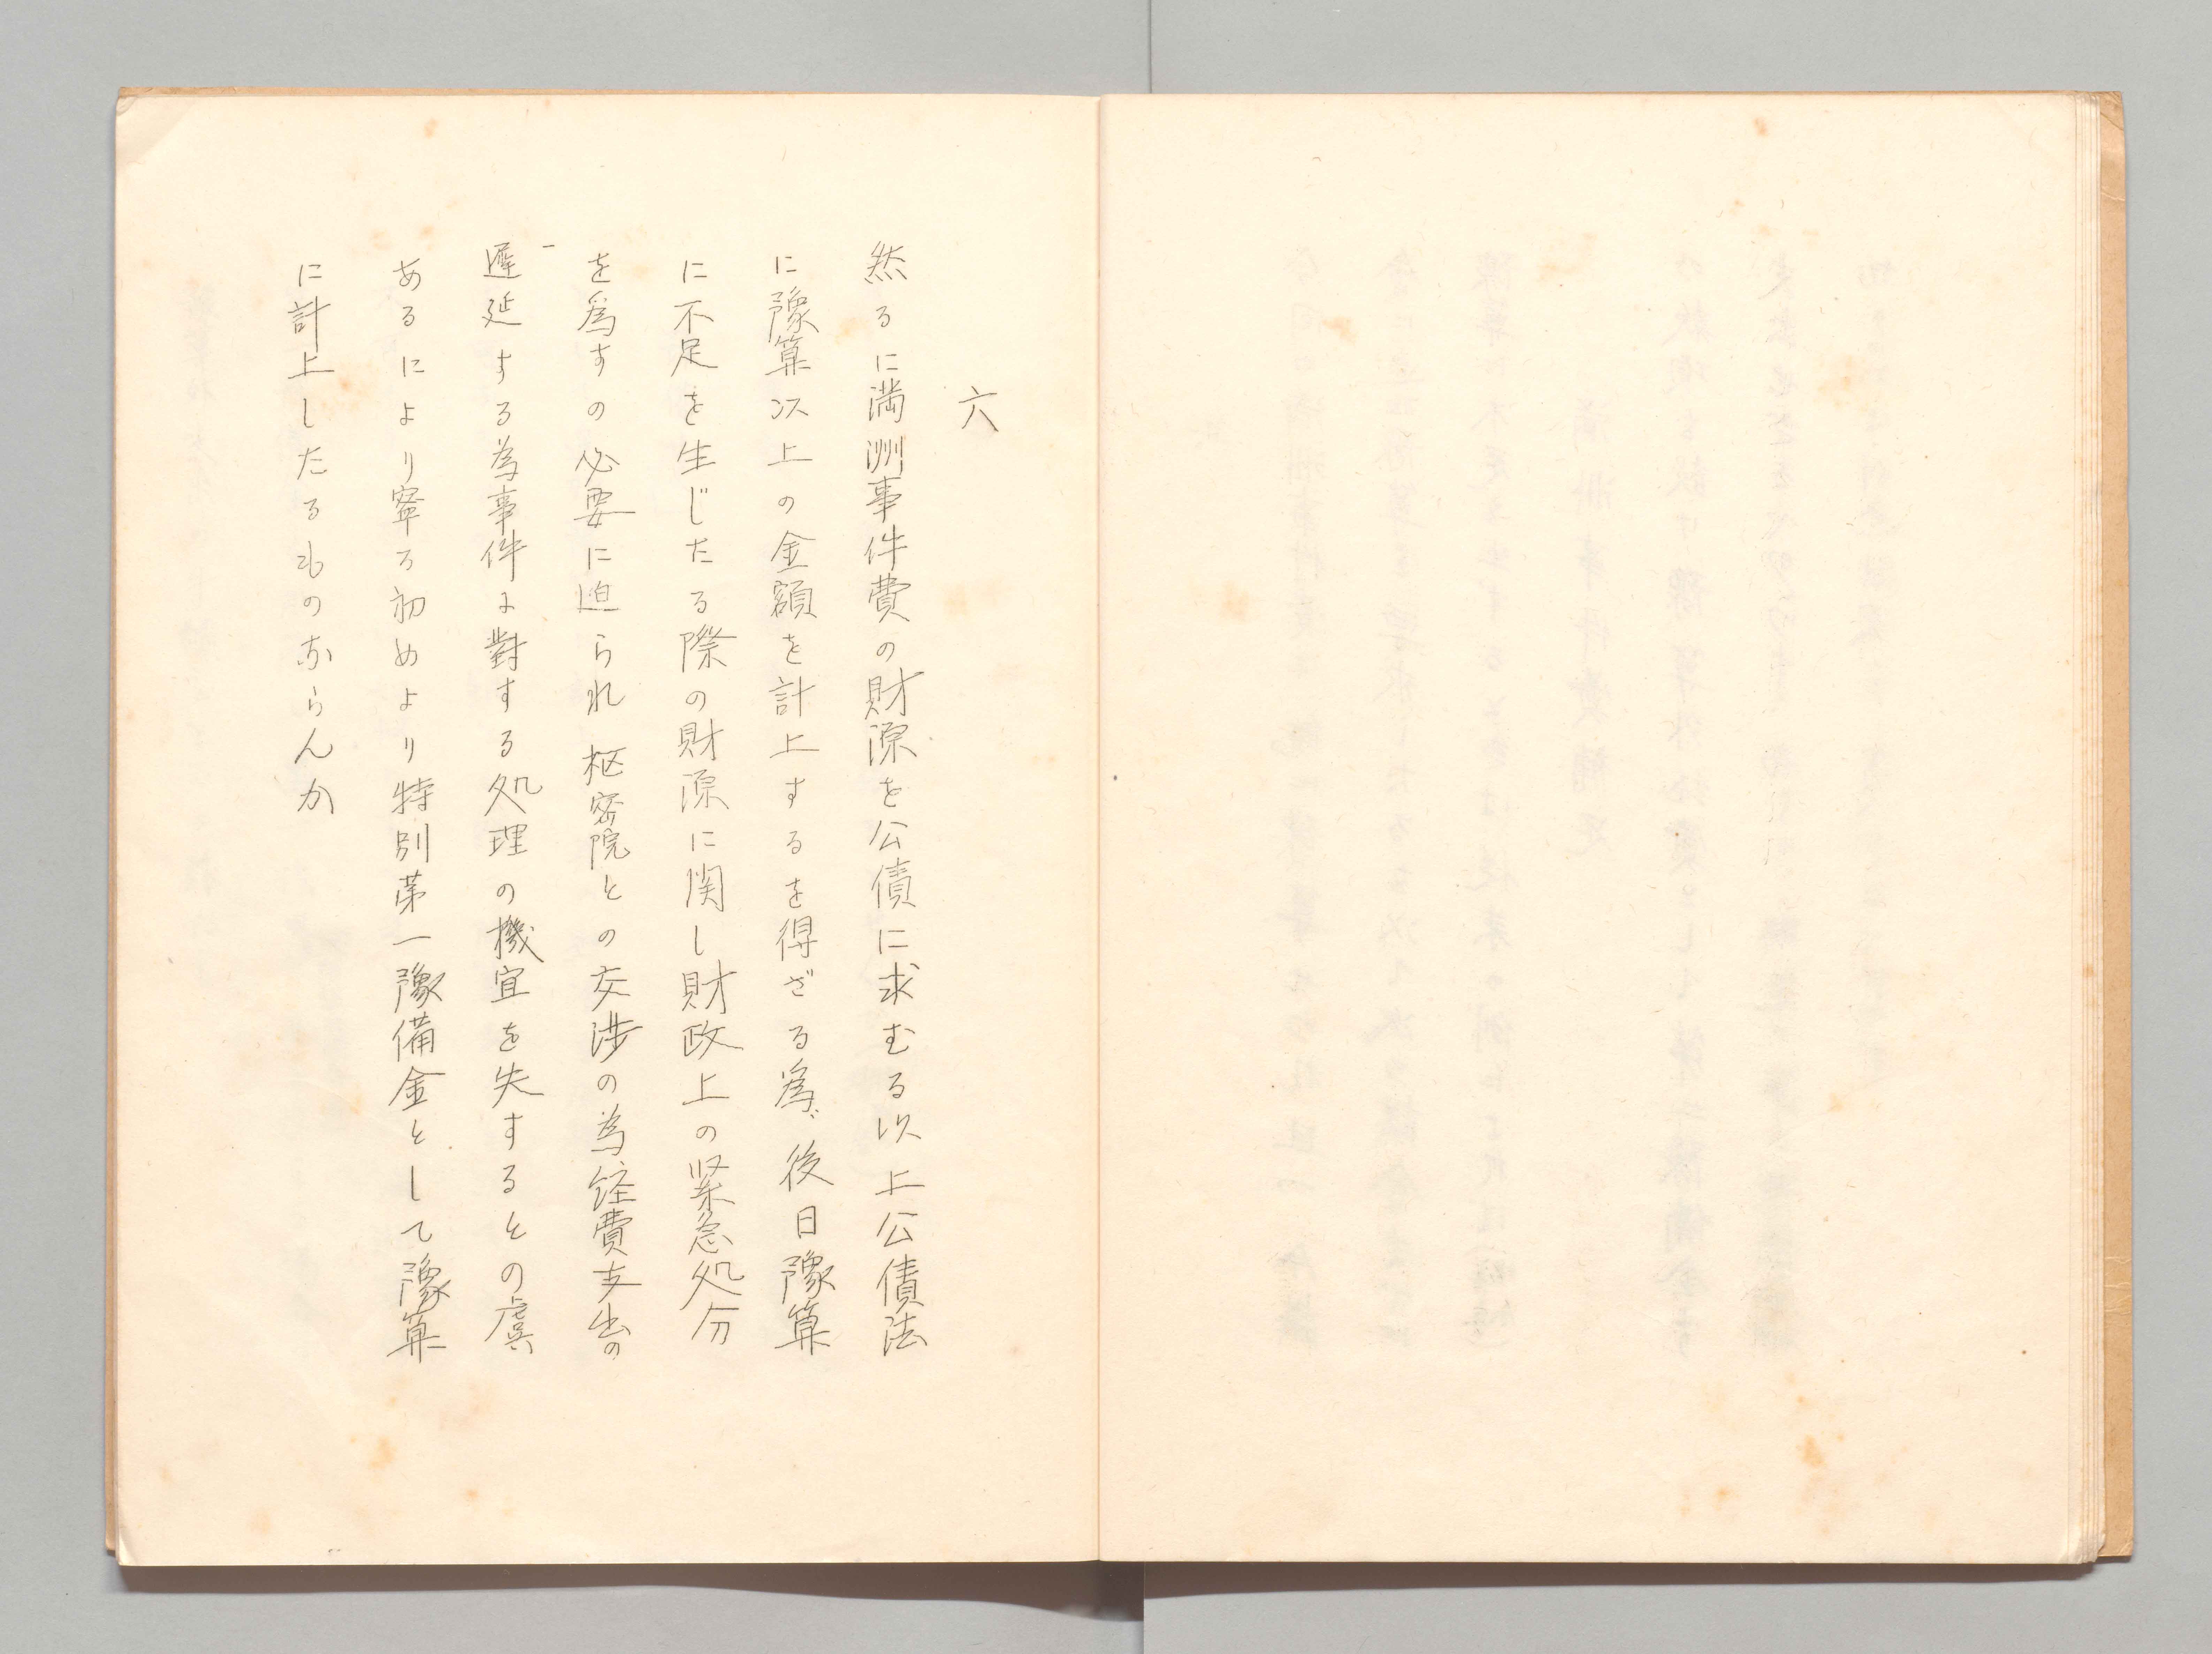 六
然るに満洲事件費の財源を公債に求むる以上公債法
に豫算以上の金額を計上するを得ざる為、後日豫算
に不足を生じたる際の財源に関し財政上の緊急処分
を為すの必要に迫られ枢密院との交渉の為経費支出の
遅延する為事件に對する処理の機宜を失するとの虞
あるにより寧ろ初めより特別第一豫備金として豫算
に計上したるものならんか